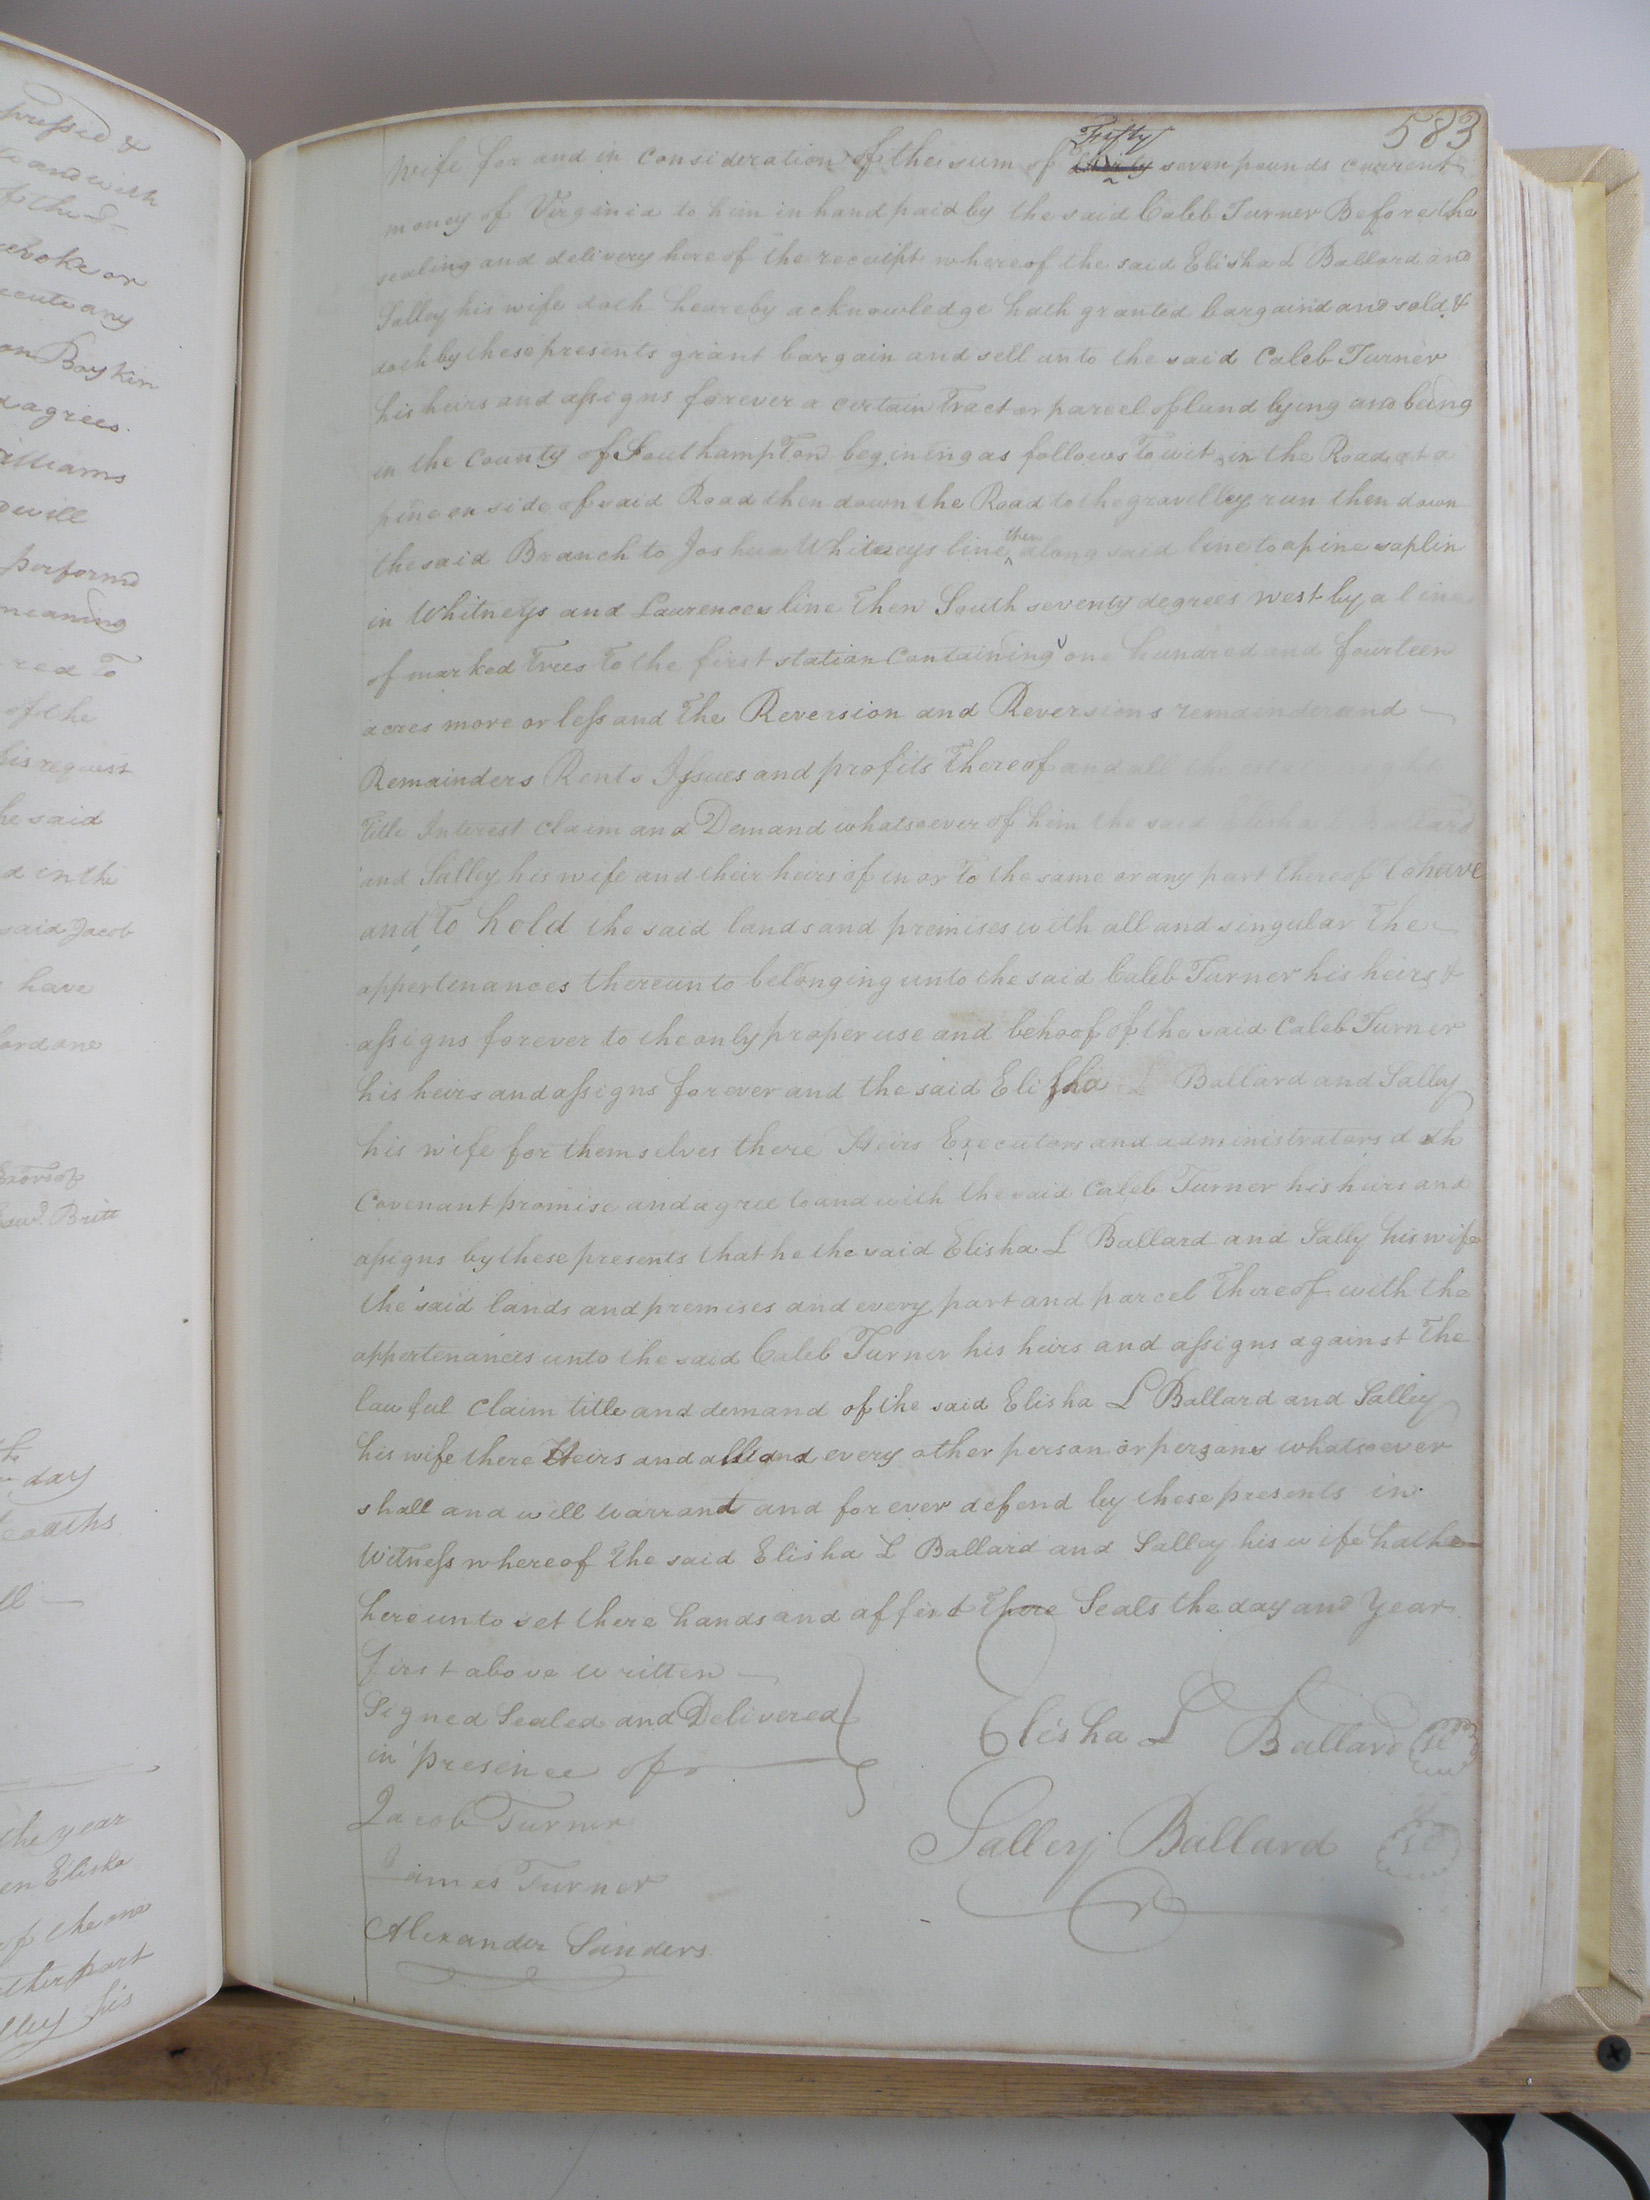 pressed &
and with
of the
revoke or
execute any
on Boykin
d agrees
Williams
will
perform'd
meaning
red To
of the
his request
he said
d in the
said Jacob
have
Edwd. Britt
day
the year
en Elisha
of the one
other part
lley his
583
wife for and in Consideration of the sum of Fifty seven pounds current
money of Virginia to him in hand paid by the said Caleb Turner Before the
sealing and delivery here of the receipt where of the said Elisha L Ballard and
Salley his wife doth heareby acknowledge hath granted bargaind and sold &
doth by these presents grant bargain and sell unto the said Caleb Turner
his heirs and assigns forever a certain Tract or parcel of land lying and being
in the County of Southampton begining as follows To wit, in the Road at a
pine on side of said Road then down the Road to the gravelley run then down
the said Branch to Joshua Whitneys line then along said line to a pine saplin
in Whitneys and Laurences line Then South seventy degrees west by a line
of marked Trees To the first station Containing one hundred and fourteen
acres more or less and The Reversion and Reversions remainder and
Remainders Rents Issues and profits Thereof and all the
Title Interest claim and Demand whatsoever of him the said Elisha L Ballard
and Salley his wife and their heirs of in or To the same or any part thereof To have
and To hold the said lands and premises with all and singular The
appertenances thereunto belonging unto the said Caleb Turner his heirs &
assigns forever to the only proper use and behoof of the said Caleb Turner
his heirs and assigns forever and the said Elisha L Ballard and Sally
his wife for themselves there Heirs Executors and administrators doth
Covenant promise and agree to and with the said Caleb Turner his heirs and
assigns by these presents that he the said Elisha L Ballard and Sally his wife
the said lands and premises and every part and parcel Thereof with the
appertenances unto the said Caleb Turner his heirs and assigns against The
lawful Claim title and demand of the said Elisha L Ballard and Salley
his wife there Heirs and all and every other person or persons whatsoever
shall and will warrant and forever defend by these presents in
Witness whereof The said Elisha L Ballard and Salley his wife hathe
hereunto set there hands and affixt There Seals the day and Year
first above written
Signed Sealed and Delivered
in presence of
Elisha L Ballard
Jacob Turner
Salley Ballard
James Turner
Alexander Sanders